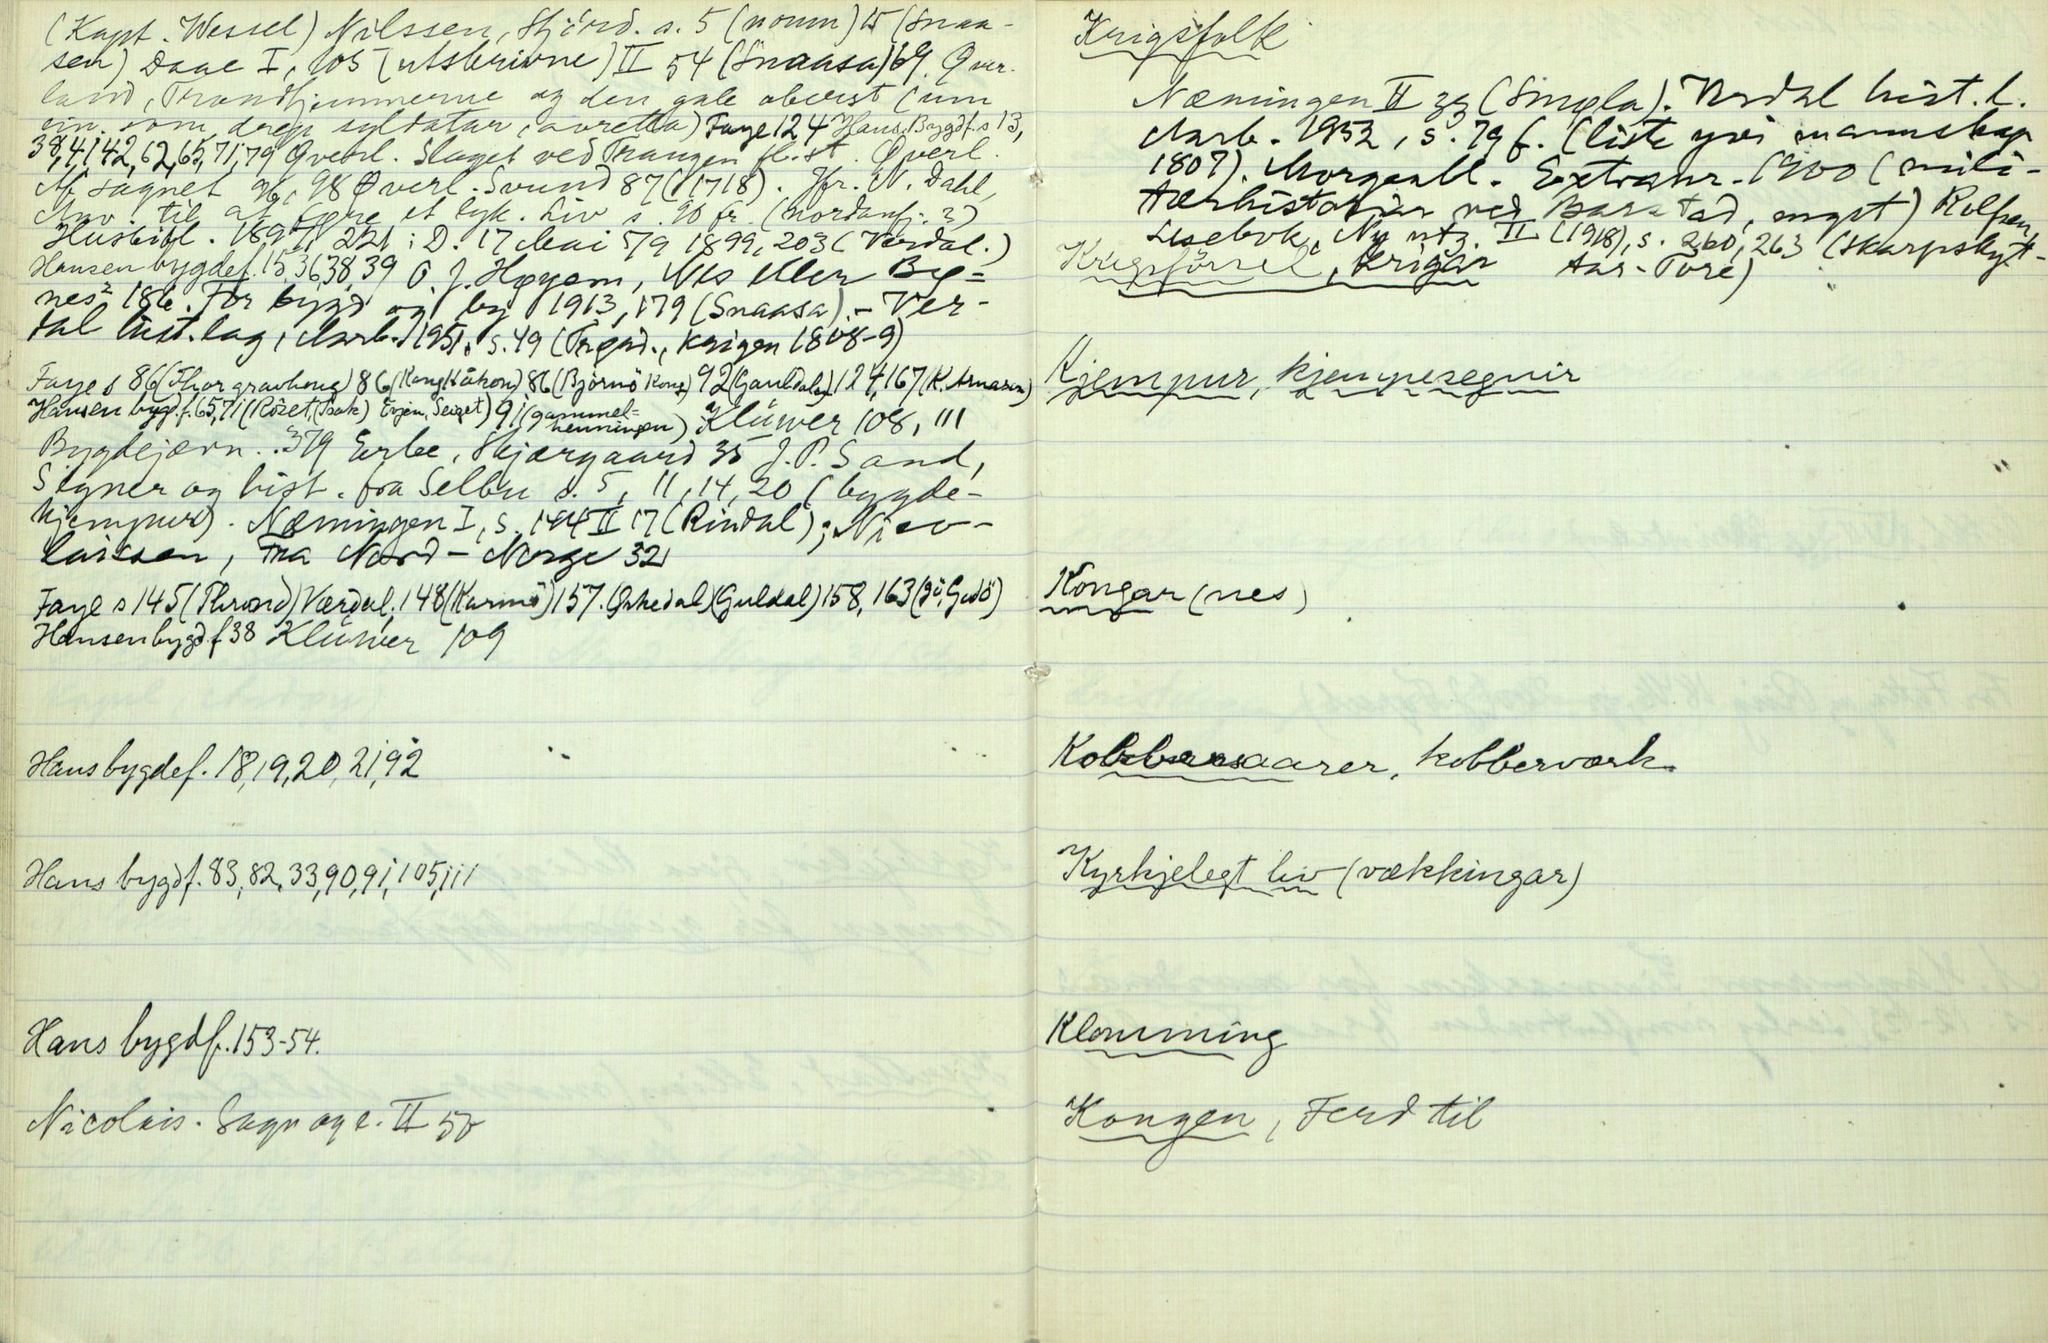 (Kapt. Wessel) Nilssen, Stjörd. s. 5 (norum) 15 (Snaa-
sen) Daae I, 105 (utskrivne) II 54 (Snaasa) 69. Qver-
land, Trondhjemmerne og den gale oberst (um
ein som drep syldatar, avretta) Faye 124 Hans. Bygdf. s 13,
38, 41, 42, 62, 65, 71, 79 Qverl. Slaget ved Trangen fl. st. Qverl.
Af sagnet 96, 98 Qverl. Svund 87 (1718). Jfr. N. Dahl,
Anv. til at føre et lyk. Liv s. 90 fr. (nordanfj. 3)
Husbibl. 1897, 221; D. 17 Mai 5/9 1899, 203 (Verdal.)
Hansen bygdef. 15, 36, 38, 39 O. J. Høyem, Nils Uler By=
nes² 186. For bygd og by 1913, 179 (Snaasa). - Ver-
dal hist. lag, Aarb. 1951, s. 49 (krigen 1808-9)
Faye s 86 (Thor gravhaug) 86 (Kong Håkon) 86 (Björnö kong) 92 (Gauldalen) 124, 167 (K. Arnason)
Hansen bygd.f. 65, 71 (Röset, (Isak) Evjen, Seiget) 91 (gammel-
henningen) Klüwer 108, 111
Bygdejærn. 379 Erbe, Skjærgaard 35 J. P. Sand,
Segner og hist. fra Selbu s. 5, 11, 14, 20 (bygde-
kjempur). Næmingen I, s. 144 II 17 (Rindal); Nico-
laissen, Fra Nord-Norge 32
Faye s 145 (Thrond) Værdal, 148 (Karmö) 157. (Orkedal) (Guldal) 158, 163 (Gi, Godö)
Hansen bygd f 38 Klüwer 109
Hans bygdef. 18, 19, 20, 21, 92
Hans bygdf. 83, 82, 33, 90, 91, 105, 111
Hans bygdf. 153-54.
Nicolais. Sagn og e. II 50
Krigsfolk
Næmingen II 33 (Smøla). Verdal hist. l.
Aarb. 1952, s. 79 f. (liste yvi mannskap
1807). Morgenbl. Extranr. 1900 (mili-
tærhistoriar ved Barstad, mgst) Rolfsen,
Lesebok, Ny utg. II (1918), s. 260, 263 (skarpskyt-
Krigsförsel, krigar tar-Tore)
Kjempur, kjempesegnir
Kongar (nes)
Kobberaarer, kobberværk
Kyrkjelegt liv (vækkingar)
Klomming
Kongen, Ferd til